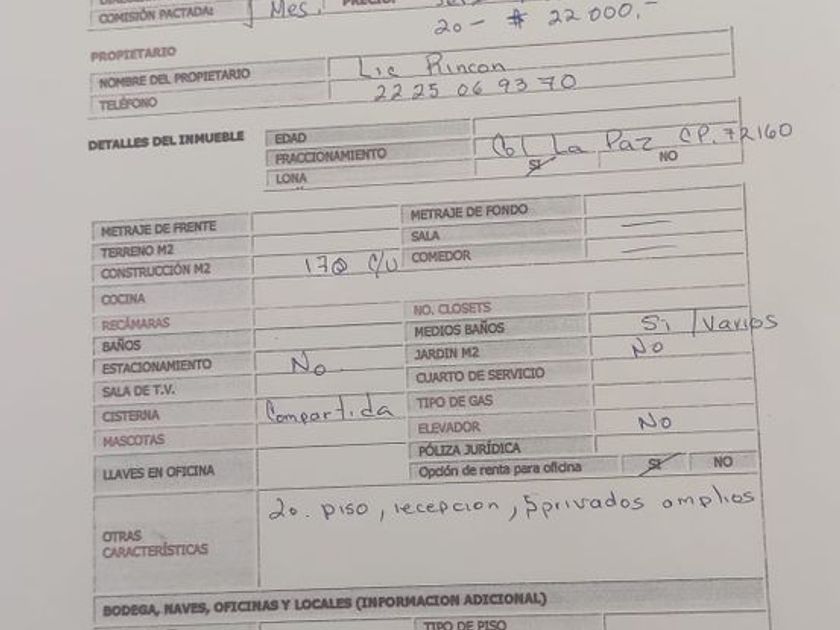 COMISIÓN PACTADA: 1 Mes.
20 - # 22 000.-
PROPIETARIO
NOMBRE DEL PROPIETARIO Lic Rincon
TELÉFONO 22 25 06 93 70
DETALLES DEL INMUEBLE EDAD
FRACCIONAMIENTO Col La Paz CP. 72160
LONA SI NO
METRAJE DE FRENTE METRAJE DE FONDO
TERRENO M2 SALA —
CONSTRUCCIÓN M2 170 c/u COMEDOR —
COCINA
RECÁMARAS NO. CLOSETS
BAÑOS MEDIOS BAÑOS Si / Varios
ESTACIONAMIENTO No JARDIN M2 No
SALA DE T.V. CUARTO DE SERVICIO
CISTERNA Compartida TIPO DE GAS
MASCOTAS ELEVADOR No
PÓLIZA JURÍDICA
LLAVES EN OFICINA Opción de renta para oficina SI NO
OTRAS CARACTERÍSTICAS 2o. piso, recepcion, 5 privados amplios
BODEGA, NAVES, OFICINAS Y LOCALES (INFORMACION ADICIONAL)
TIPO DE PISO